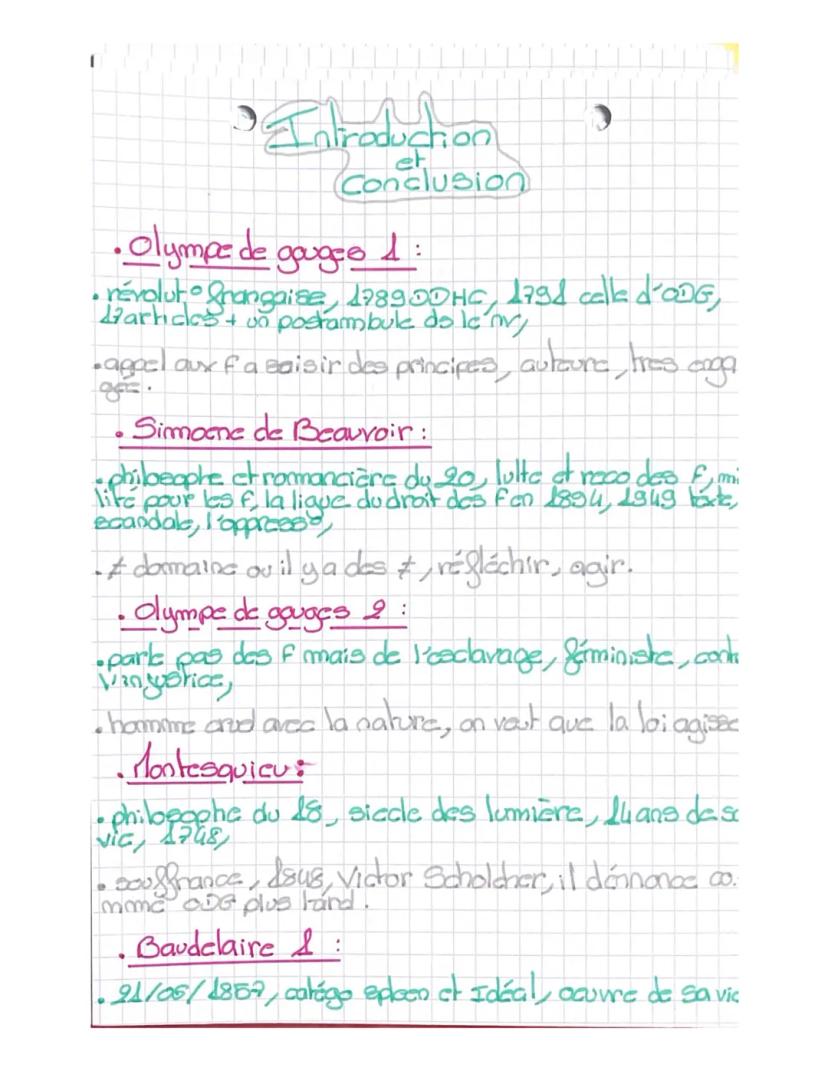 Introduction
et
conclusion
. Olympe de gouges 1 :
. révolut° française, 1789 DDHC, 1791 celle d'ODG,
17 articles + un postambule de le
. appel aux f a saisir des principes, auteure, tres enga
gée.
. Simoene de Beauvoir :
. philosophe et rommancière du 20, lutte et reco des f, mi
lité pour les f, la ligue du droit des f en 1894, 1949 texte,
scandale, l'oppress°,
. ≠ domaine ou il y a des ≠, réfléchir, agir.
. Olympe de gouges 2 :
. parle pas des f mais de l'esclavage, féministe, cont
l'injustice,
. homme crud avec la nature, on veut que la loi agisse
. Montesquieu :
. philosophe du 18, siecle des lumière, 14 ans de sa
vie, 1748,
. souffrance, 1848, Victor Scholcher, il dénnonce co.
mme ODG plus tard.
. Baudelaire 1 :
. 21/06/1857, catégo spleen et Idéal, oeuvre de sa vie